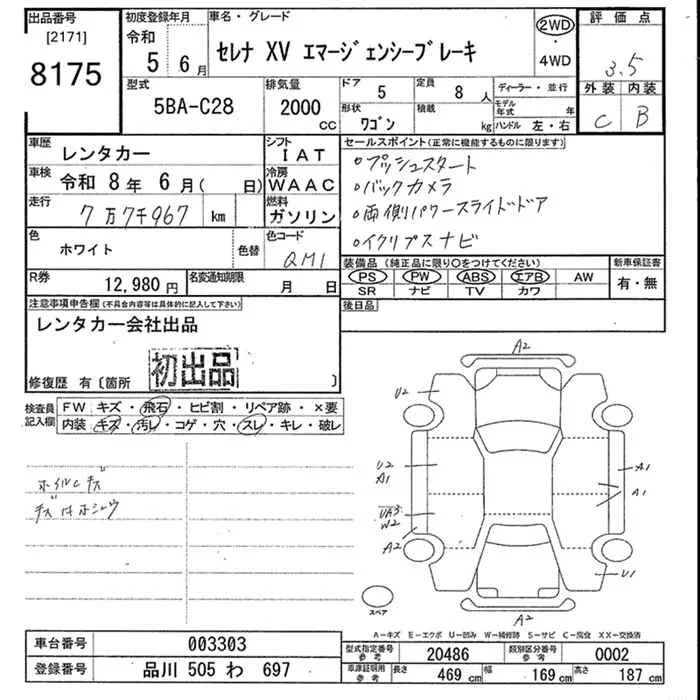 出品番号
[2171]
8175
初度登録年月
令和
5 6月
車名・グレード
セレナ XV エマージェンシーブレーキ
2WD
・
4WD
評価点
3.5
外装 内装
C B
型式
5BA-C28
排気量
2000
CC
ドア
5
定員
8人
形状
ワゴン
積載
kg
ディーラー・並行
モデル年式 年
ハンドル 左・右
車歴
レンタカー
シフト
IAT
車検 令和 8年 6月( 日)
冷房
WAAC
走行
7万7千967 km
燃料
ガソリン
色
ホワイト
色替
色コード
QM1
R券
12,980円
名変通知期限
月 日
セールスポイント(正常に機能するものに限ります)
○プッシュスタート
○バックカメラ
○両側パワースライドドア
○イクリプスナビ
装備品(純正品に限り○をつけてください)
PS PW ABS エアB AW
SR ナビ TV カワ
新車保証書
有・無
後日品
注意事項申告欄(不具合内容等は具体的に記入して下さい)
レンタカー会社出品
初出品
修復歴 有〔箇所 〕
検査員記入欄
FW キズ・飛石・ヒビ割・リペア跡・×要
内装 キズ・汚レ・コゲ・穴・スレ・キレ・破レ
ホイルキズ
キズ
A2
U2
U2
A1
A1
A1
UA3
W2
A2
U1
A2
スペア
A-キズ E-エクボ U-凹み W-補修跡 S-サビ C-腐食 XX-交換済
車台番号
003303
登録番号
品川 505 わ 697
型式指定番号
参考
20486
類別区分番号
参考
0002
車庫証明用
参考
長さ
469 cm
幅
169 cm
高さ
187 cm